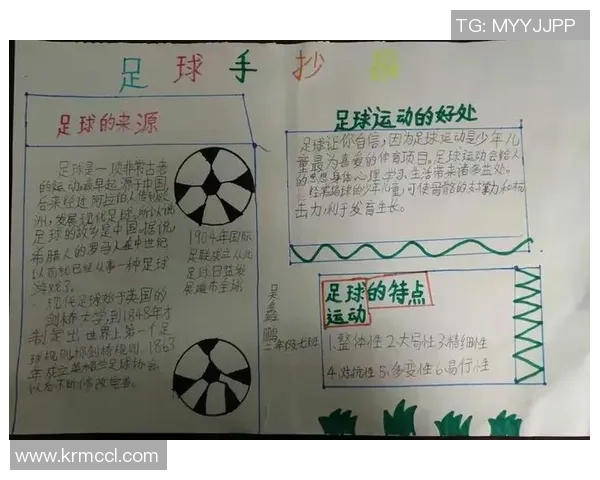 TG: MYYJJPP
足球手抄报
足球的来源
足球是一项非常古老
的运动,最早起源于中国,
后来经过阿拉伯人传到欧
洲,发展现代足球。所以说
足球的故乡是中国。据说,
希腊人的罗马人在中世纪
以前就已经从事一种足球
游戏了。
现代足球始于英国的
剑桥大学,到1848年才
制定出世界上第一个足
球规则称剑桥规则。1863
年成立英格兰足球协会
以后不断修改完善。
1904年国际
足联成立从此
足球日益发
展遍布全球
吴鑫鹏
二年级七班
足球运动的好处
足球让你自信,因为足球运动是少年儿
童最为喜爱的体育项目。足球运动会给人
的思想身体心理、学习、生活带来诸多益处。
经常踢球的少年儿童,可使骨骼的对
击力,利于发育生长。
足球的特点
运动
1.整体性 2.大局性 3.精细性
4.对抗性 5.多变性 6.易行性
www.krmccl.com